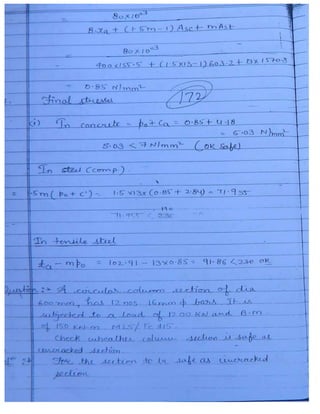 80×10^-3
=
B.xa + (1.5m-1) Asc + mAst
80×10^-3
=
400×155.5 + (1.5×13-1) 603.2 + 13×1570.8
= 0.85 N/mm²
Final stresses 172
(i) In concrete = po + Ca = 0.85 + 4.18
= 5.03 N/mm²
5.03 < 7 N/mm² (OK safe)
In steel (comp.)
= 1.5m (po + c') = 1.5×13× (0.85 + 2.84) = 71.955
In tensile steel
ta - mpo = 102.91 - 13×0.85 = 91.86 < 230 OK
Question :- A circular column section of dia
600mm, has 12 nos. 16mm φ bars It is
subjected to a load of 1200 KN and B.m
of 150 KN-m M25/Fe 415
Check wheather column section is safe as
uncracked section.
:- For the section to be safe as uncracked
section